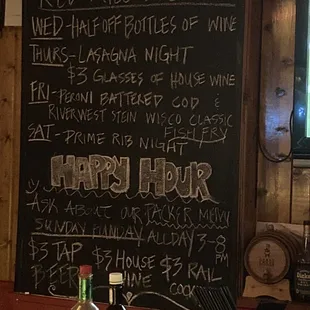 WED - HALF OFF BOTTLES OF WINE
THURS - LASAGNA NIGHT
$3 GLASSES OF HOUSE WINE
FRI - PERONI BATTERED COD &
RIVERWEST STEIN WISCO CLASSIC
FISH FRY
SAT - PRIME RIB NIGHT
HAPPY HOUR
ASK ABOUT OUR PACKER MENU
SUNDAY ALL DAY 3-8 PM
$3 TAP $3 HOUSE $3 RAIL
BEER WINE